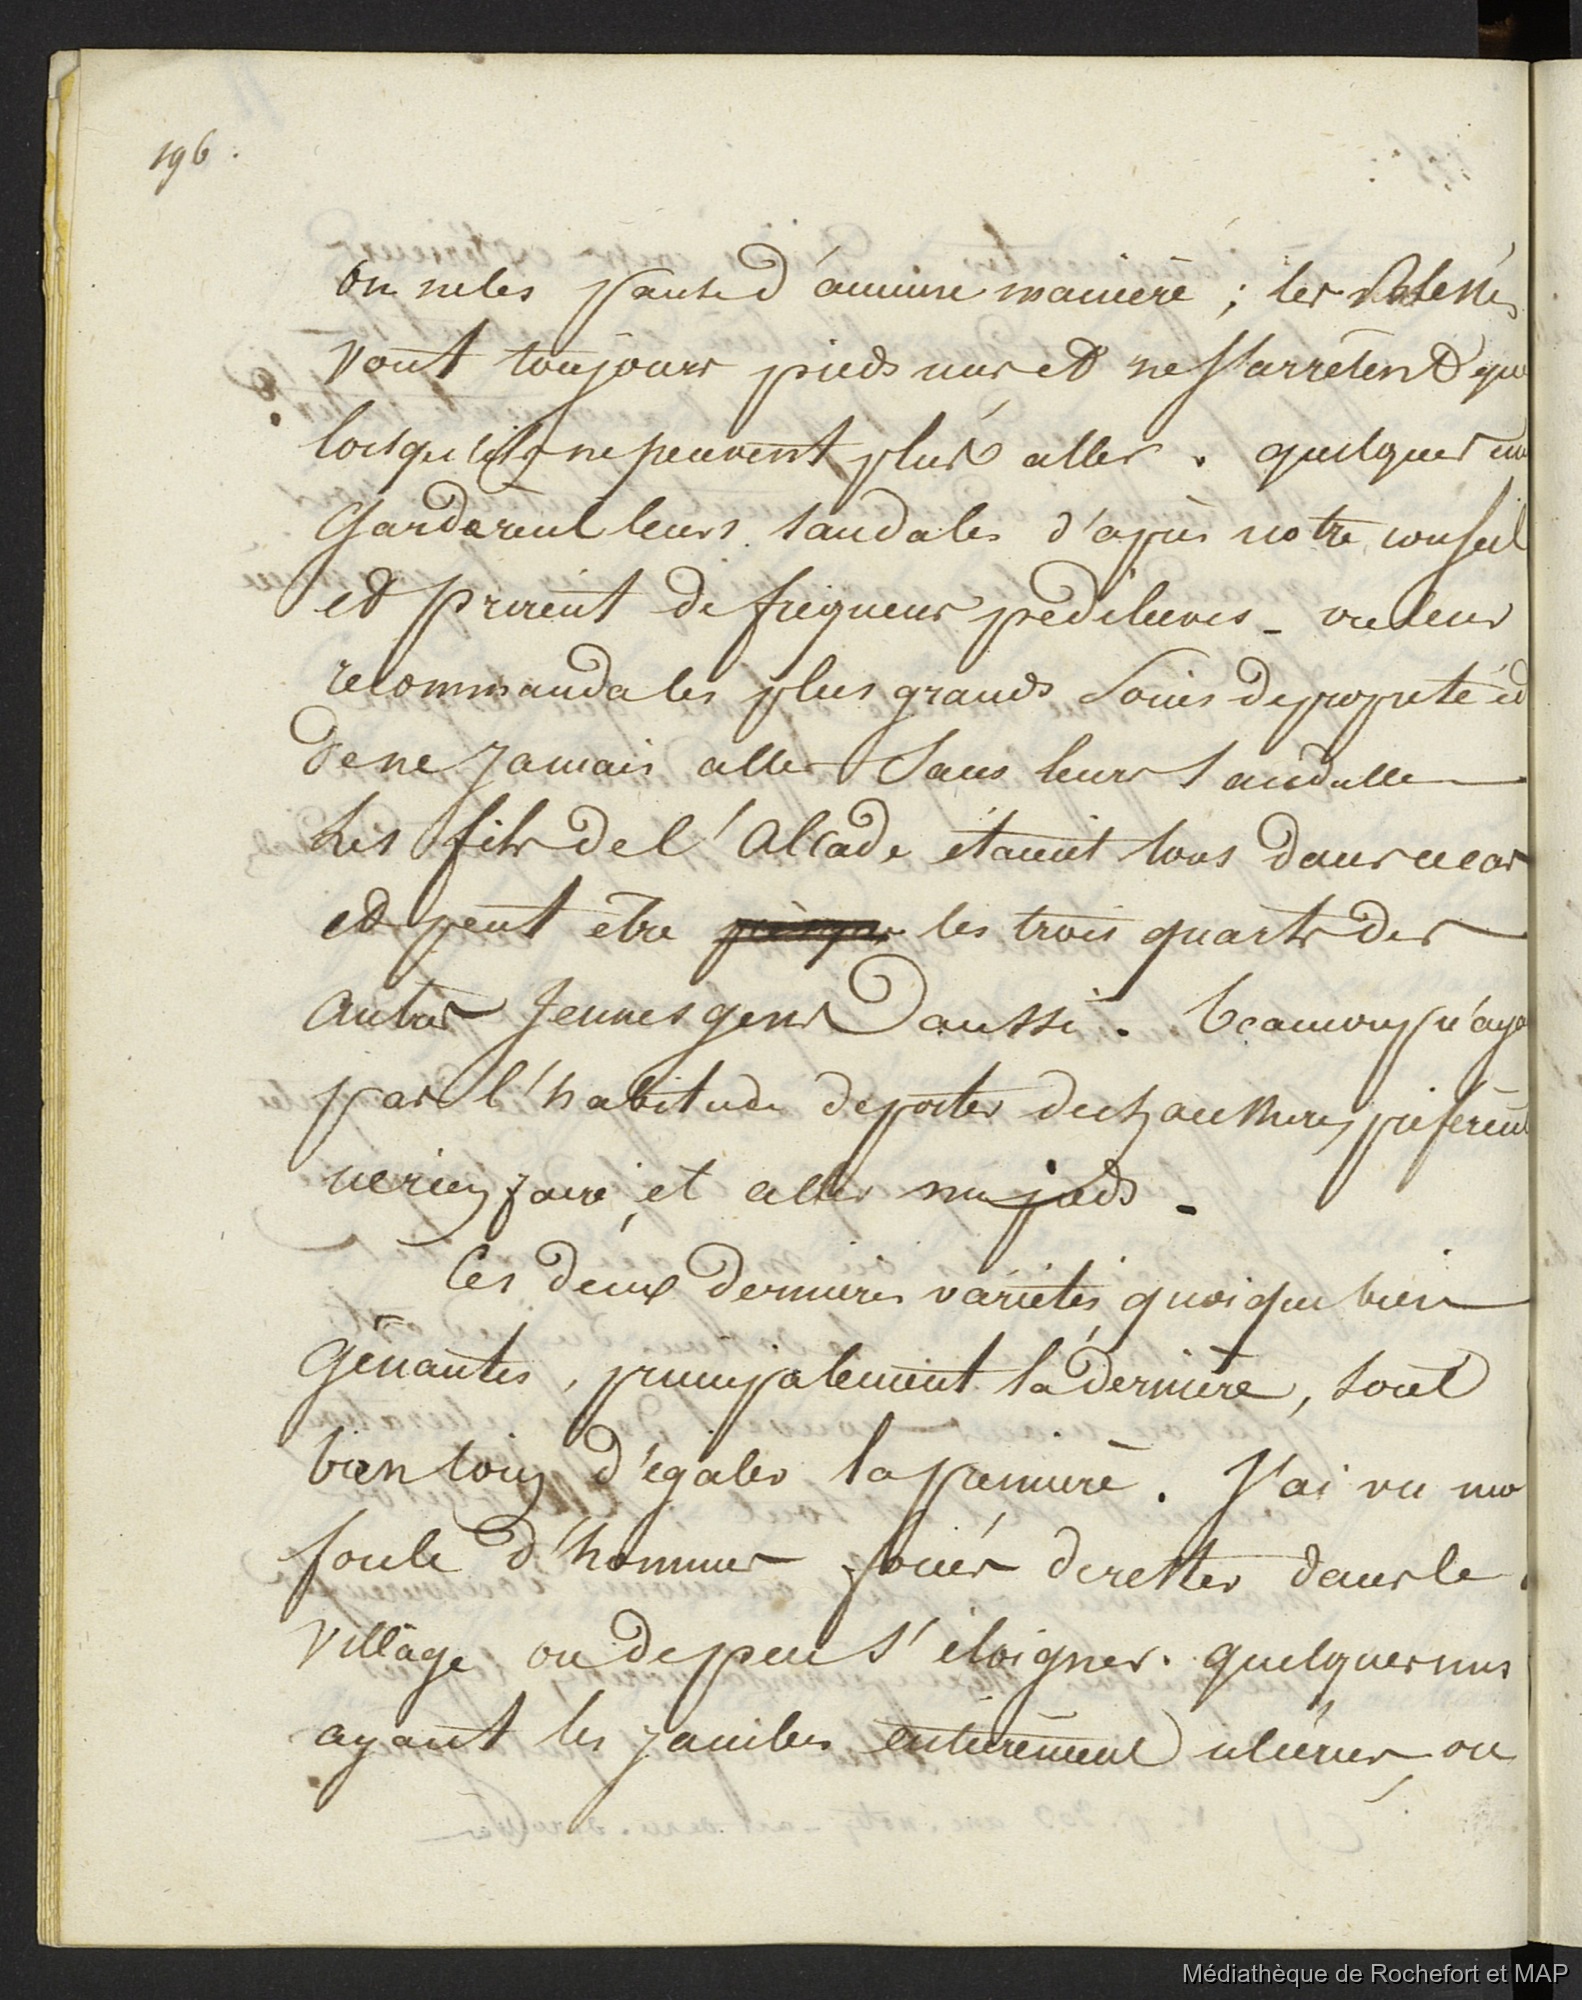 196.
on ne les panse d'aucune manière ; les blessés
vont toujours pieds nus et ne s'arrêtent que
lorsqu'ils ne peuvent plus aller. quelques uns
Gardèrent leurs sandales d'après notre conseil
et prirent de fréquens pédiluves _ on leur
recommanda les plus grands soins de propreté et
de ne jamais aller sans leurs sandalles
Les fils de l'Alcade étaient tous dans ce cas
et peut être les trois quarts des
autres Jeunes gens aussi. beaucoup n'ayant
pas l'habitude de porter de chaussures, préfèrent
ne rien faire, et aller nu pieds.
Ces deux dernières variétés, quoique bien
Gênantes, principalement la dernière, sont
bien loin d'égaler la première. J'ai vu une
foule d'hommes forcés de rester dans le
village ou de peu s'éloigner. quelques uns
ayant les jambes entièrement ulcérées, ou
Médiathèque de Rochefort et MAP